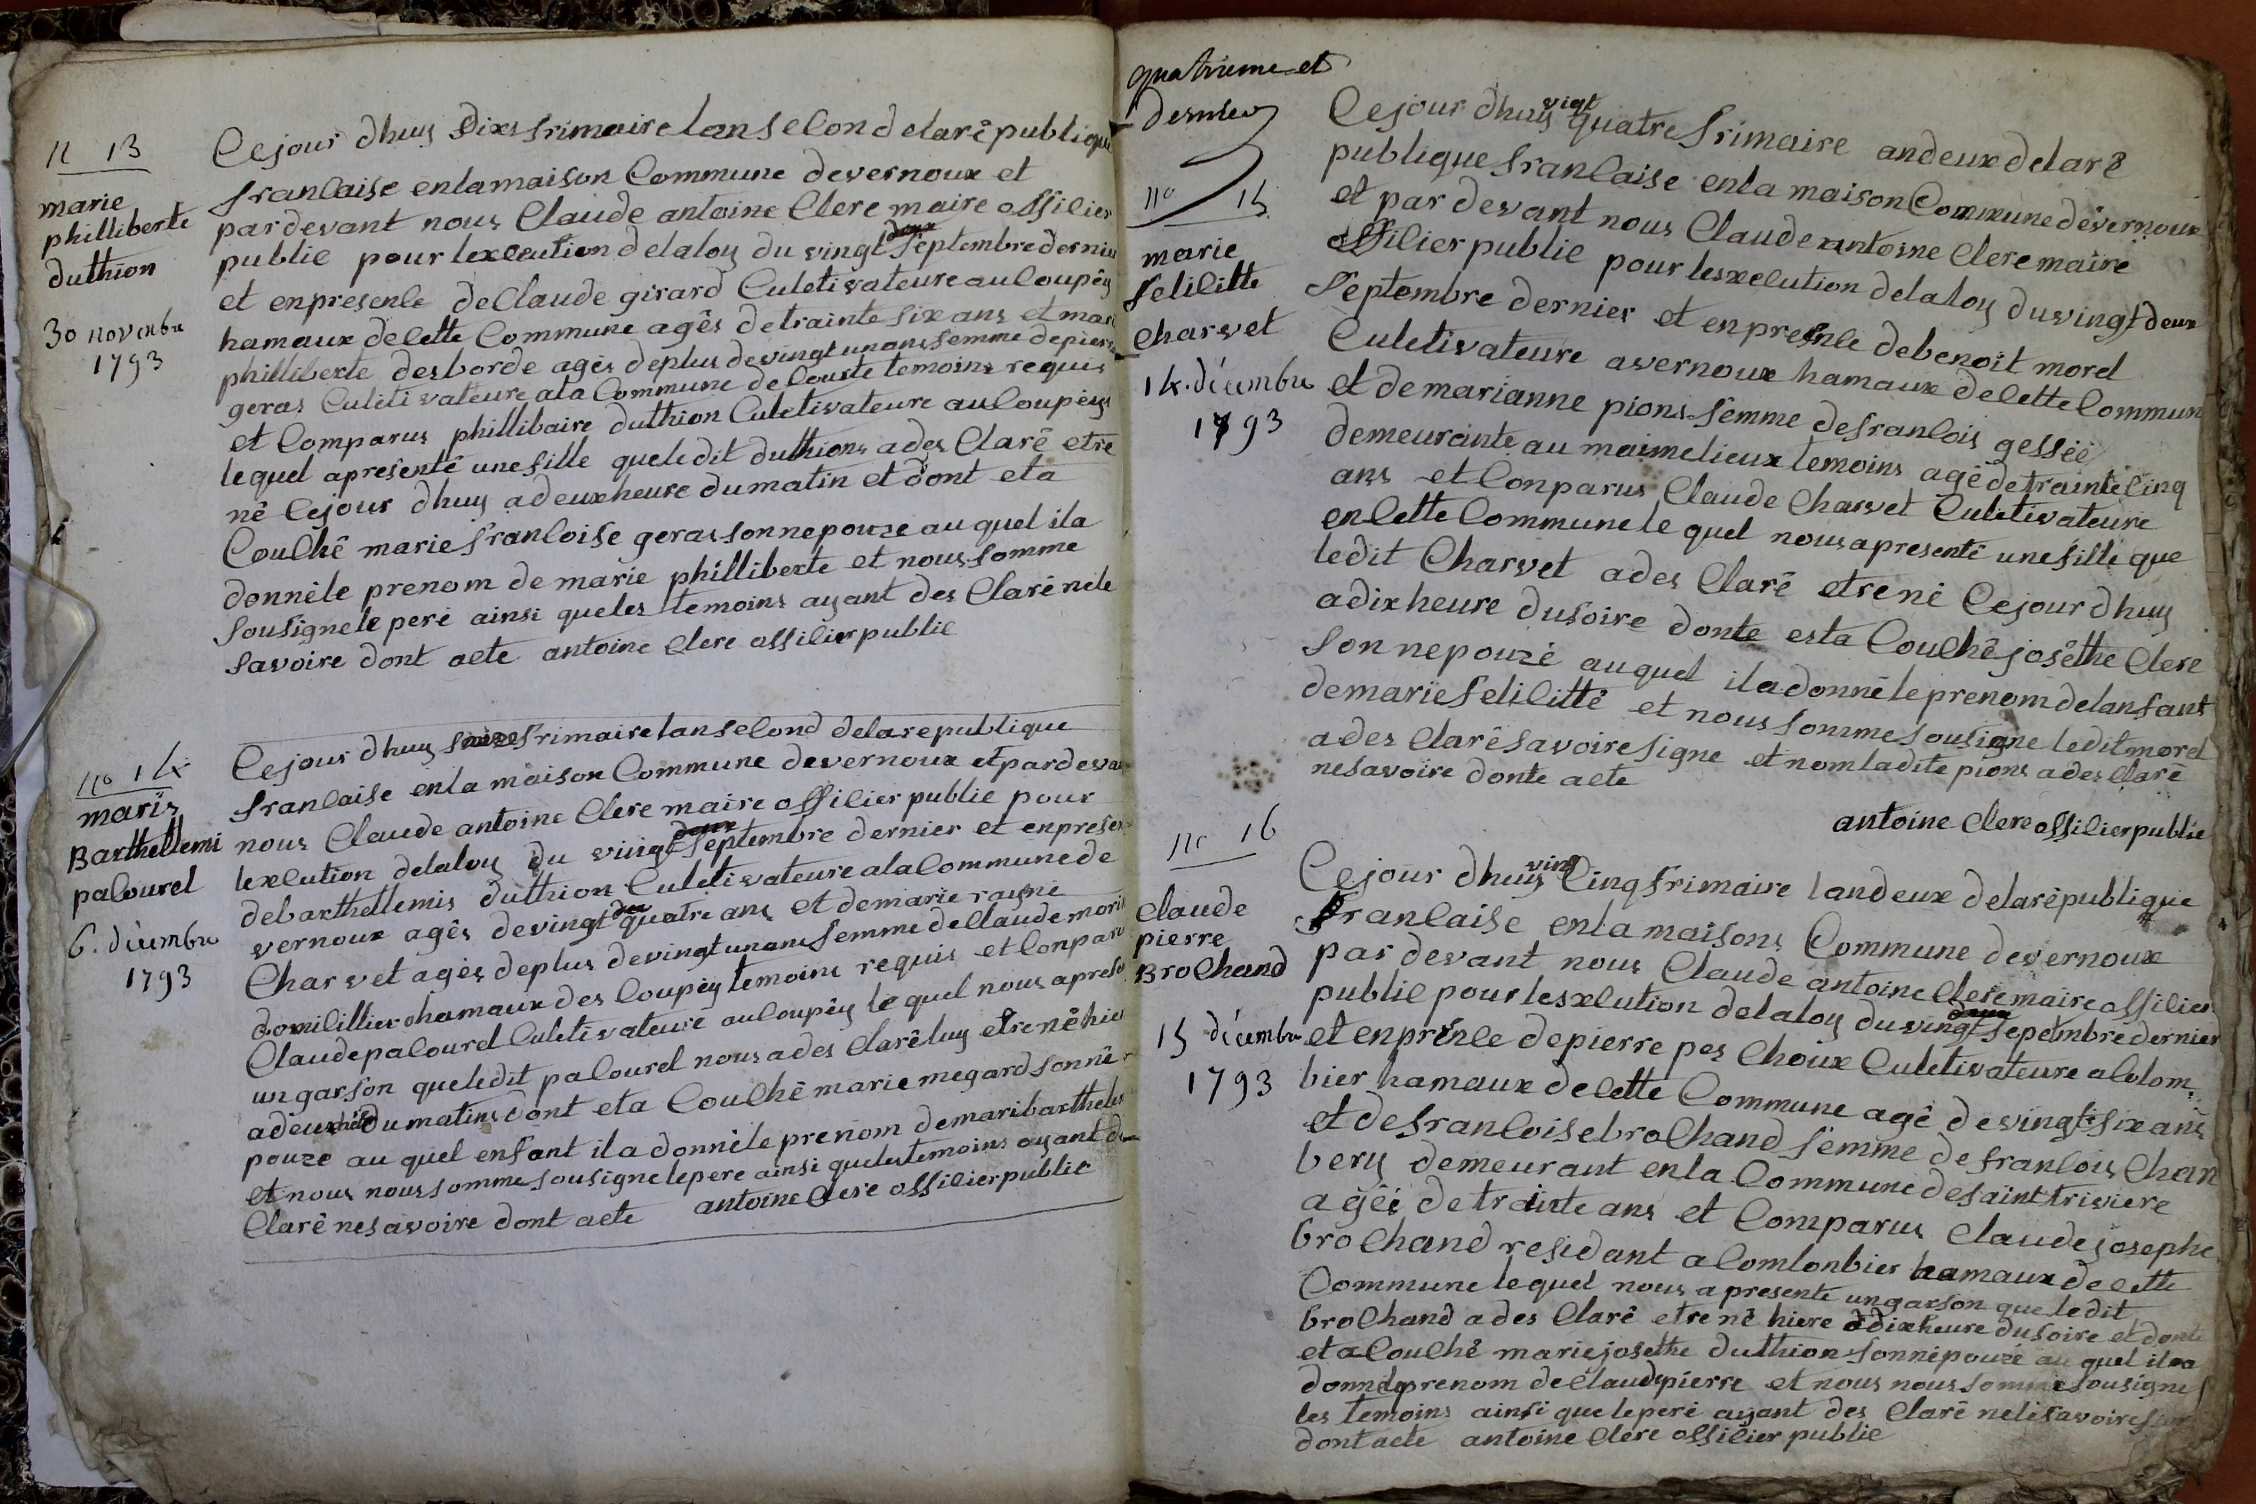 n 13
marie
philliberte
duthion
30 novembre
1793
Cejour dhuy Dixs frimaire lan seCond delarêpublique
franCaise enlamaison Commune devernoux et
pardevant nous Claude antoine Clere maire offiCier
publiC pour lexeCution delaloy du vingt deux septembre dernier
et enpresenCe deClaude girard Culetivateure auCoupêy
hamaux deCette Commune agês detrainte six ans et marie
philliberte desborde agês deplus devingt unans femme depierre
geras Culetivateure ala Commune de Courte temoins requis
et Comparus phillibaire duthion Culetivateure auCoupêys
lequel apresentê unefille queledit duthions ades Clarê etre
nê Cejour dhuy adeuxheure dumatin et dont eta
CouChê marie franCoise geras sonnepouze au quel ila
donnêle prenom de marie philliberte et nous somme
sousignele perê ainsi queles temoins ayant des Clarê nele
savoire dont aCte antoine Clere offiCier publiC
no 14
maris
Barthellemi
paCourel
6. décembre
1793
Cejour dhuy frimaire lan seCond delarepublique
franCaise enla maison Commune devernoux etpardevant
nous Claude antoine Clere maire offiCier publiC pour
lexCution delaloy du vingt deux septembre dernier et enpresen
debarthellemis duthion Culetivateure alaCommune de
vernoux agês devingt quatre ans et demarie rayne
Charvet agês deplus devingt unans femme deClaude moris
domiCillier hamaux des Coupêy temoins requis et Conparu
ClaudepaCourel Culetivateurê auCoupêy le quel nous apresen
un garson queledit paCourel nous ades Clarê luy etrenê hier
adeux heure dumatins dont eta CouChê marie megard sonnê
pouze au quel enfant il a donnêle prenom demaribarthele
et nous nous somme sousigne lepere ainsi quelestemoins ayant de
Clarê nesavoire dont aCte antoine Clere offiCier publiC
quatrieme et
dernier
no 15
marie
feliCitte
Charvet
14. décembre
1793
Cejour dhuy vigt quatre frimaire andeux delarê
publique franCaise enla maison Commune dêvernoux
et par devant nous Claude antoine Clere mairê
offiCier publiC pour lesxeCution delaloy duvingt deux
septembre dernier et enpresenCe debenoit morel
Culetivateure avernoux hamaux deCette Commun
et demarianne pions femme defranCois gesseê
demeurante au maimelieux temoins agê detrainte Cinq
ans et Conparus Claude Charvet Culetivateure
enCette Commune le quel nousapresentê unefille que
ledit Charvet ades Clarê etrenê Cejour dhuy
adixheure dusoire donte esta CouChê josêthe Clere
sonnepouzê auquel iladonnêle prenom delanfant
demarie feliCittê et nous somme sousigne ledit morel
ades Clarê savoire signe et nom ladite pions ades Clarê
nesavoire donte aCte
antoine Clere offiCier publiC
no 16
Claude
pierre
BroChand
15 décembre
1793
Cejour dhuy vingt Cinq frimaire landeux delarêpublique
franCaise enla maisons Commune devernoux
par devant nous Claude antoine Clere maire offiCier
publiC pour lesxCution delaloy du vingt deux sepetmbre dernier
et enprênCe depierre pes Choux Culetivateure aColom
bier hamaux deCette Commune agê devingt six ans
et defranCoisebroChand femme defranCois Chan
bery demeurant enla Commune desaint trisiere
agêê detrainte ans et Comparus Claudejosephe
broChand residant aComlonbier hamaux deCette
Commune lequel nous apresente ungarson que ledit
broChand ades Clarê etrenê hiere adixheure dusoire et donte
eta CouChê mariejosethe duthion sonnêpouzê au quel ila
donnêleprenom deClaudepierre et nous nous somme sousigne
les temoins ainsi que leperê ayant des Clarê nelesavoire
dontaCte antoine Clere offiCier publiC